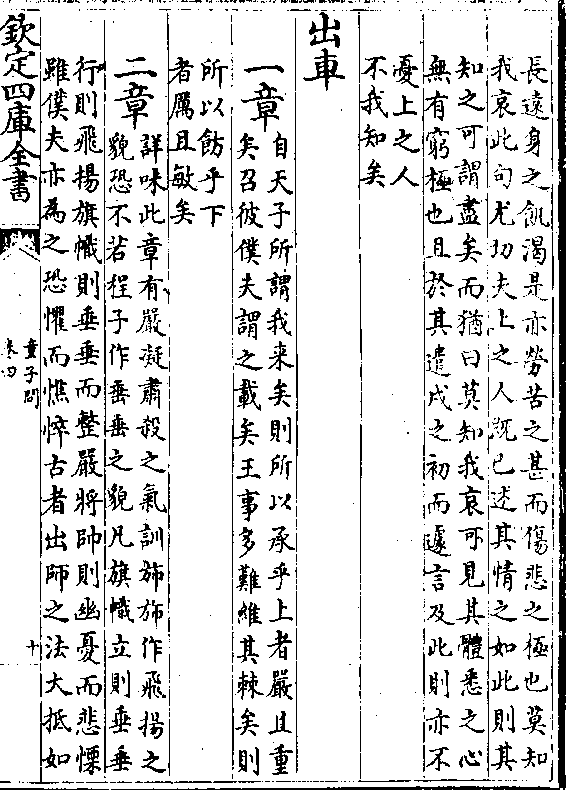 長遠身之飢渴是亦勞苦之甚而傷悲之極也莫知
我哀此句尤切夫上之人既已述其情之如此則其
知之可謂盡矣而猶曰莫知我哀可見其體悉之心
無有窮極也且於其遣戍之初而遽言及此則亦不
憂上之人
不我知矣
出車
一章
自天子所謂我来矣則所以承乎上者嚴且重
矣召彼僕夫謂之載矣王事多難維其棘矣則
所以飭乎下
者厲且敏矣
二章
詳味此章有嚴凝肅殺之氣訓斾斾作飛揚之
貌恐不若程子作垂垂之貌凡旗幟立則垂垂
行則飛揚旗幟則垂垂而整嚴將帥則幽憂而悲慄
雖僕夫亦為之恐懼而憔悴古者出師之法大抵如
欽定四庫全書
童子問
卷四
十